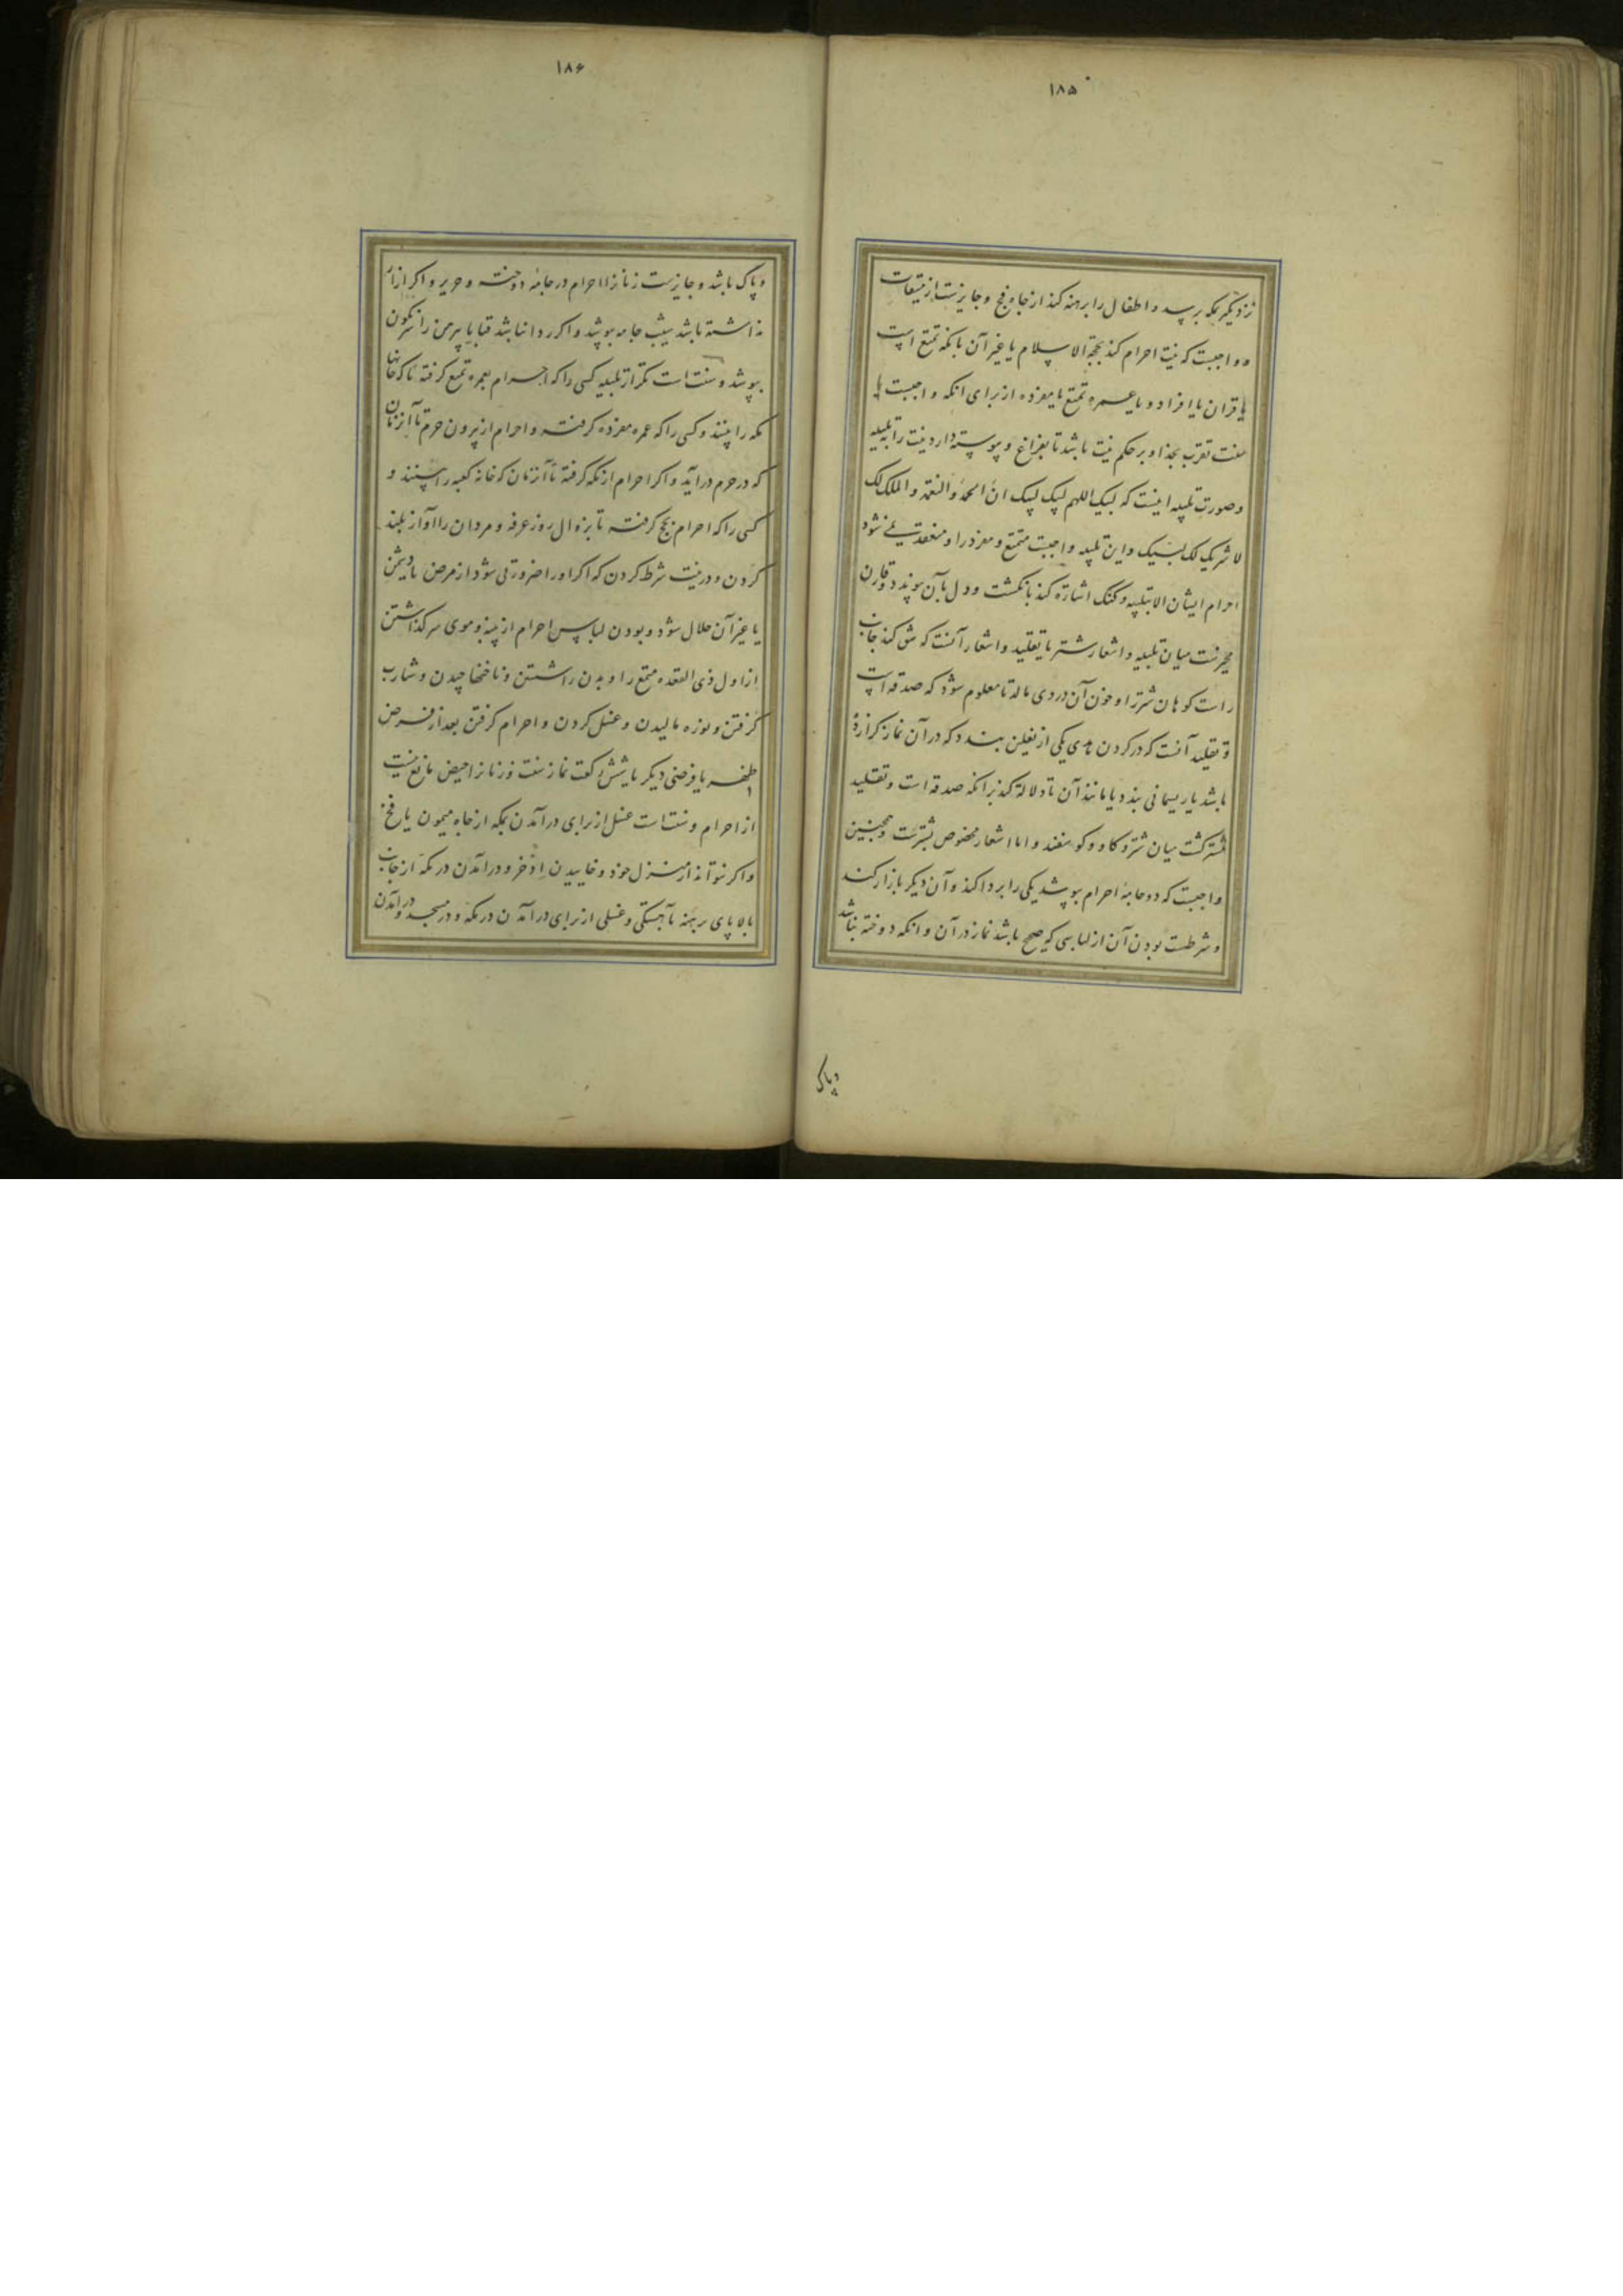 ۱۸۵
نزدیکتر بمکه برسد و اطفال را برهنه کند از چاه فخ و جایز نیست از میقات
و واجبست که نیت احرام کند بحجة الاسلام یا غیر آن بانکه تمتع است
یا قران یا افراد و یا عمره تمتع یا مفرده از برای انکه واجبست یا
سنت تقرب بخدا و بر حکم نیت باشد تا بفراغ و پیوسته دارد نیت را بتلبیه
و صورت تلبیه اینست که لبیک اللهم لبیک لبیک ان الحمد و النعمة و الملک لک
لا شریک لک لبیک و این تلبیه واجبست متمتع و مفرد را و منعقد نمی شود
احرام ایشان الا بتلبیه و کنک اشارة کند بانکشت و دل بآن پیوندد و قارن
مخیرست میان تلبیه و اشعار شتر یا تقلید و اشعار آنست که شق کند جانب
راست کوهان شتر را و خون آن در وی مالد تا معلوم شود که صدقه است
و تقلید آنست که در کردن هدی یکی از نعلین بندد که در آن نماز کزارده
باشد یا ریسمانی بندد یا مانند آن تا دلالة کند برانکه صدقه است و تقلید
مشترکست میان شتر و کاو و کوسفند و اما اشعار مخصوص بشترست و همچنین
واجبست که دو جامۀ احرام بپوشد یکی را بردا کند و آن دیکر بازار کند
و شرطست بودن آن از لباسی که صحیح باشد نماز در آن و انکه دوخته نباشد
وپاک
۱۸۶
و پاک باشد و جایزست زنانرا احرام در جامۀ دوخته و حریر و اکر ازار
نداشته باشد بیشب جامه بپوشد و اکر ردا نباشد قبا یا پیرهن را نکون
بپوشد و سنت است تکرار تلبیه کسی را که احرام بعمره تمتع کرفته تا که خانها
مکه را بینند و کسی را که عمره مفرده کرفته و احرام از بیرون حرم تا آنزمان
که در حرم درآید و اکر احرام از مکه کرفته تا آنزمان که خانه کعبه را بینند و
کسی را که احرام بحج کرفته تا بزوال روز عرفه و مردان را آواز بلند
کردن و در نیت شرط کردن که اکر او را ضرورتی شود از مرض یا دشمن
یا غیر آن حلال شود و بودن لباس احرام از پنبه و موی سر کذاشتن
از اول ذی القعده متمتع را و بدن را شستن و ناخنها چیدن و شارب
کرفتن و نوره مالیدن و غسل کردن و احرام کرفتن بعد از فرض
ظهر یا فرضی دیکر یا شش رکعت نماز سنت و زنانرا حیض مانع نیست
از احرام و سنت است غسل از برای درآمدن بمکه از چاه میمون یا فخ
و اکر نتواند از منزل خود و خاییدن اذخر و درآمدن در مکه از جانب
بالا پای برهنه بآهستکی و غسلی از برای درآمدن در مکه و در مسجد و درآمدن